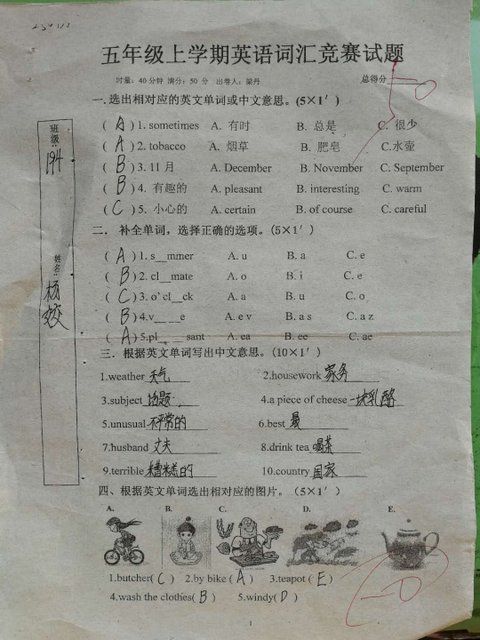 五年级上学期英语词汇竞赛试题
时量：40分钟 满分：50分 出卷人：梁丹 总得分
班级： 194
姓名： 杨姣
一.选出相对应的英文单词或中文意思。(5×1′)
( A ) 1. sometimes A. 有时 B. 总是 C. 很少
( A ) 2. tobacco A. 烟草 B. 肥皂 C.水壶
( B ) 3. 11月 A. December B. November C. September
( B ) 4. 有趣的 A. pleasant B. interesting C. warm
( C ) 5. 小心的 A. certain B. of course C. careful
二．补全单词，选择正确的选项。(5×1′)
( A ) 1. s__mmer A. u B. a C. e
( B ) 2. cl__mate A. o B. i C. e
( C ) 3. o' cl__ck A. a B. u C. o
( B ) 4.v____e A. e v B. a s C. a z
( A ) 5.pl____sant A. ea B. ee C. ae
三．根据英文单词写出中文意思。(10×1′)
1.weather 天气 2.housework 家务
3.subject 话题 4.a piece of cheese 一块乳酪
5.unusual 不平常的 6.best 最
7.husband 丈夫 8.drink tea 喝茶
9.terrible 糟糕的 10.country 国家
四、根据英文单词选出相对应的图片。(5×1′)
A. B. C. D. E.
1.butcher( C ) 2.by bike ( A ) 3.teapot ( E )
4.wash the clothes( B ) 5.windy( D )
1